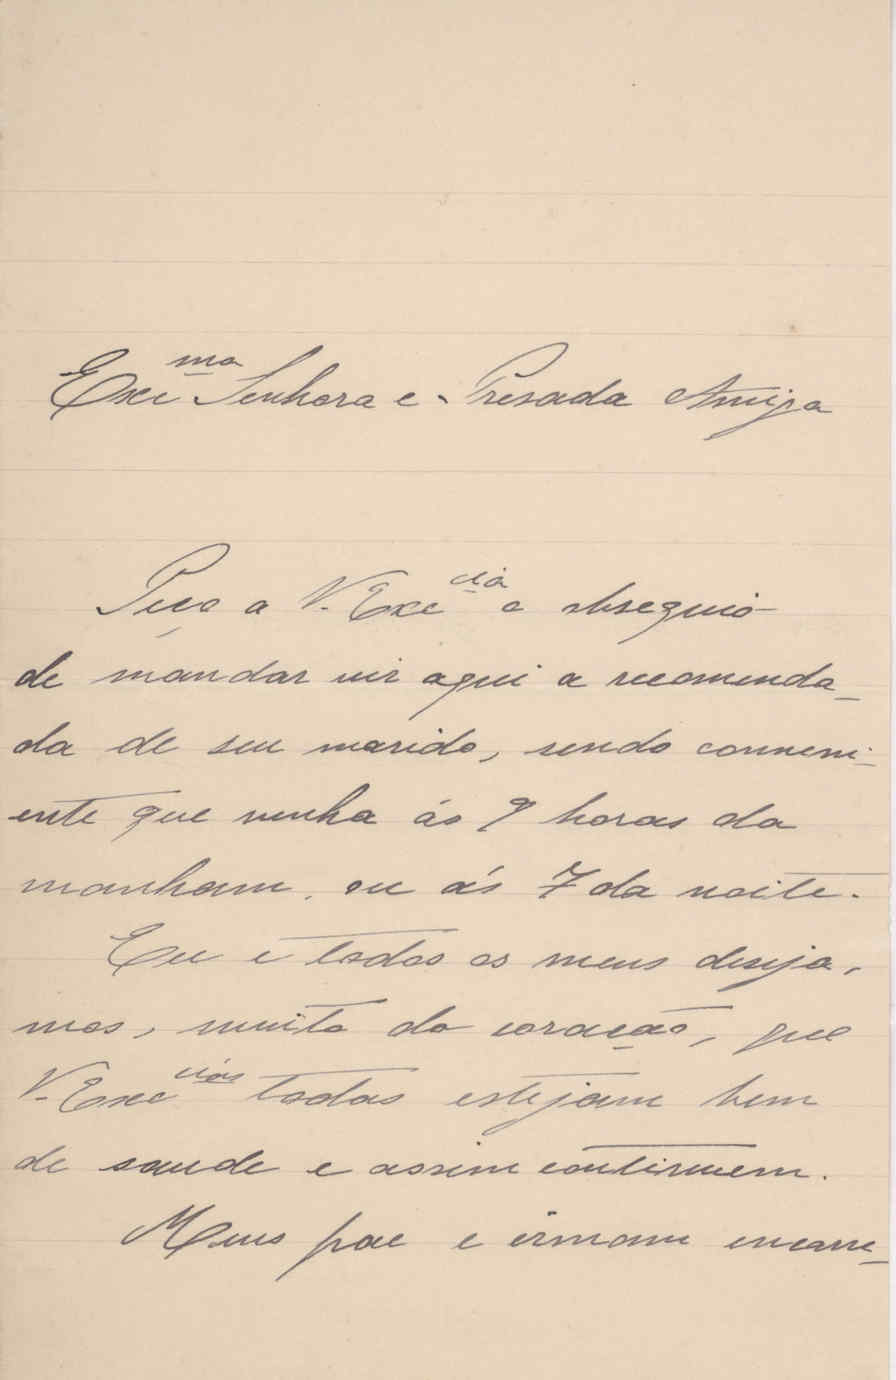 Exc.ma Senhora e Presada Amiga
Peço a V. Exc.cia o obsequio
de mandar vir aqui a recomenda-
da de seu marido, sendo conveni-
ente que venha ás 9 horas da
manham, ou ás 7 da noite.
Eu e todos os meus deseja-
mos, muito do coração, que
V. Exc.cias todas estejam bem
de saude e assim continuem.
Meus pae e irmam encarre-